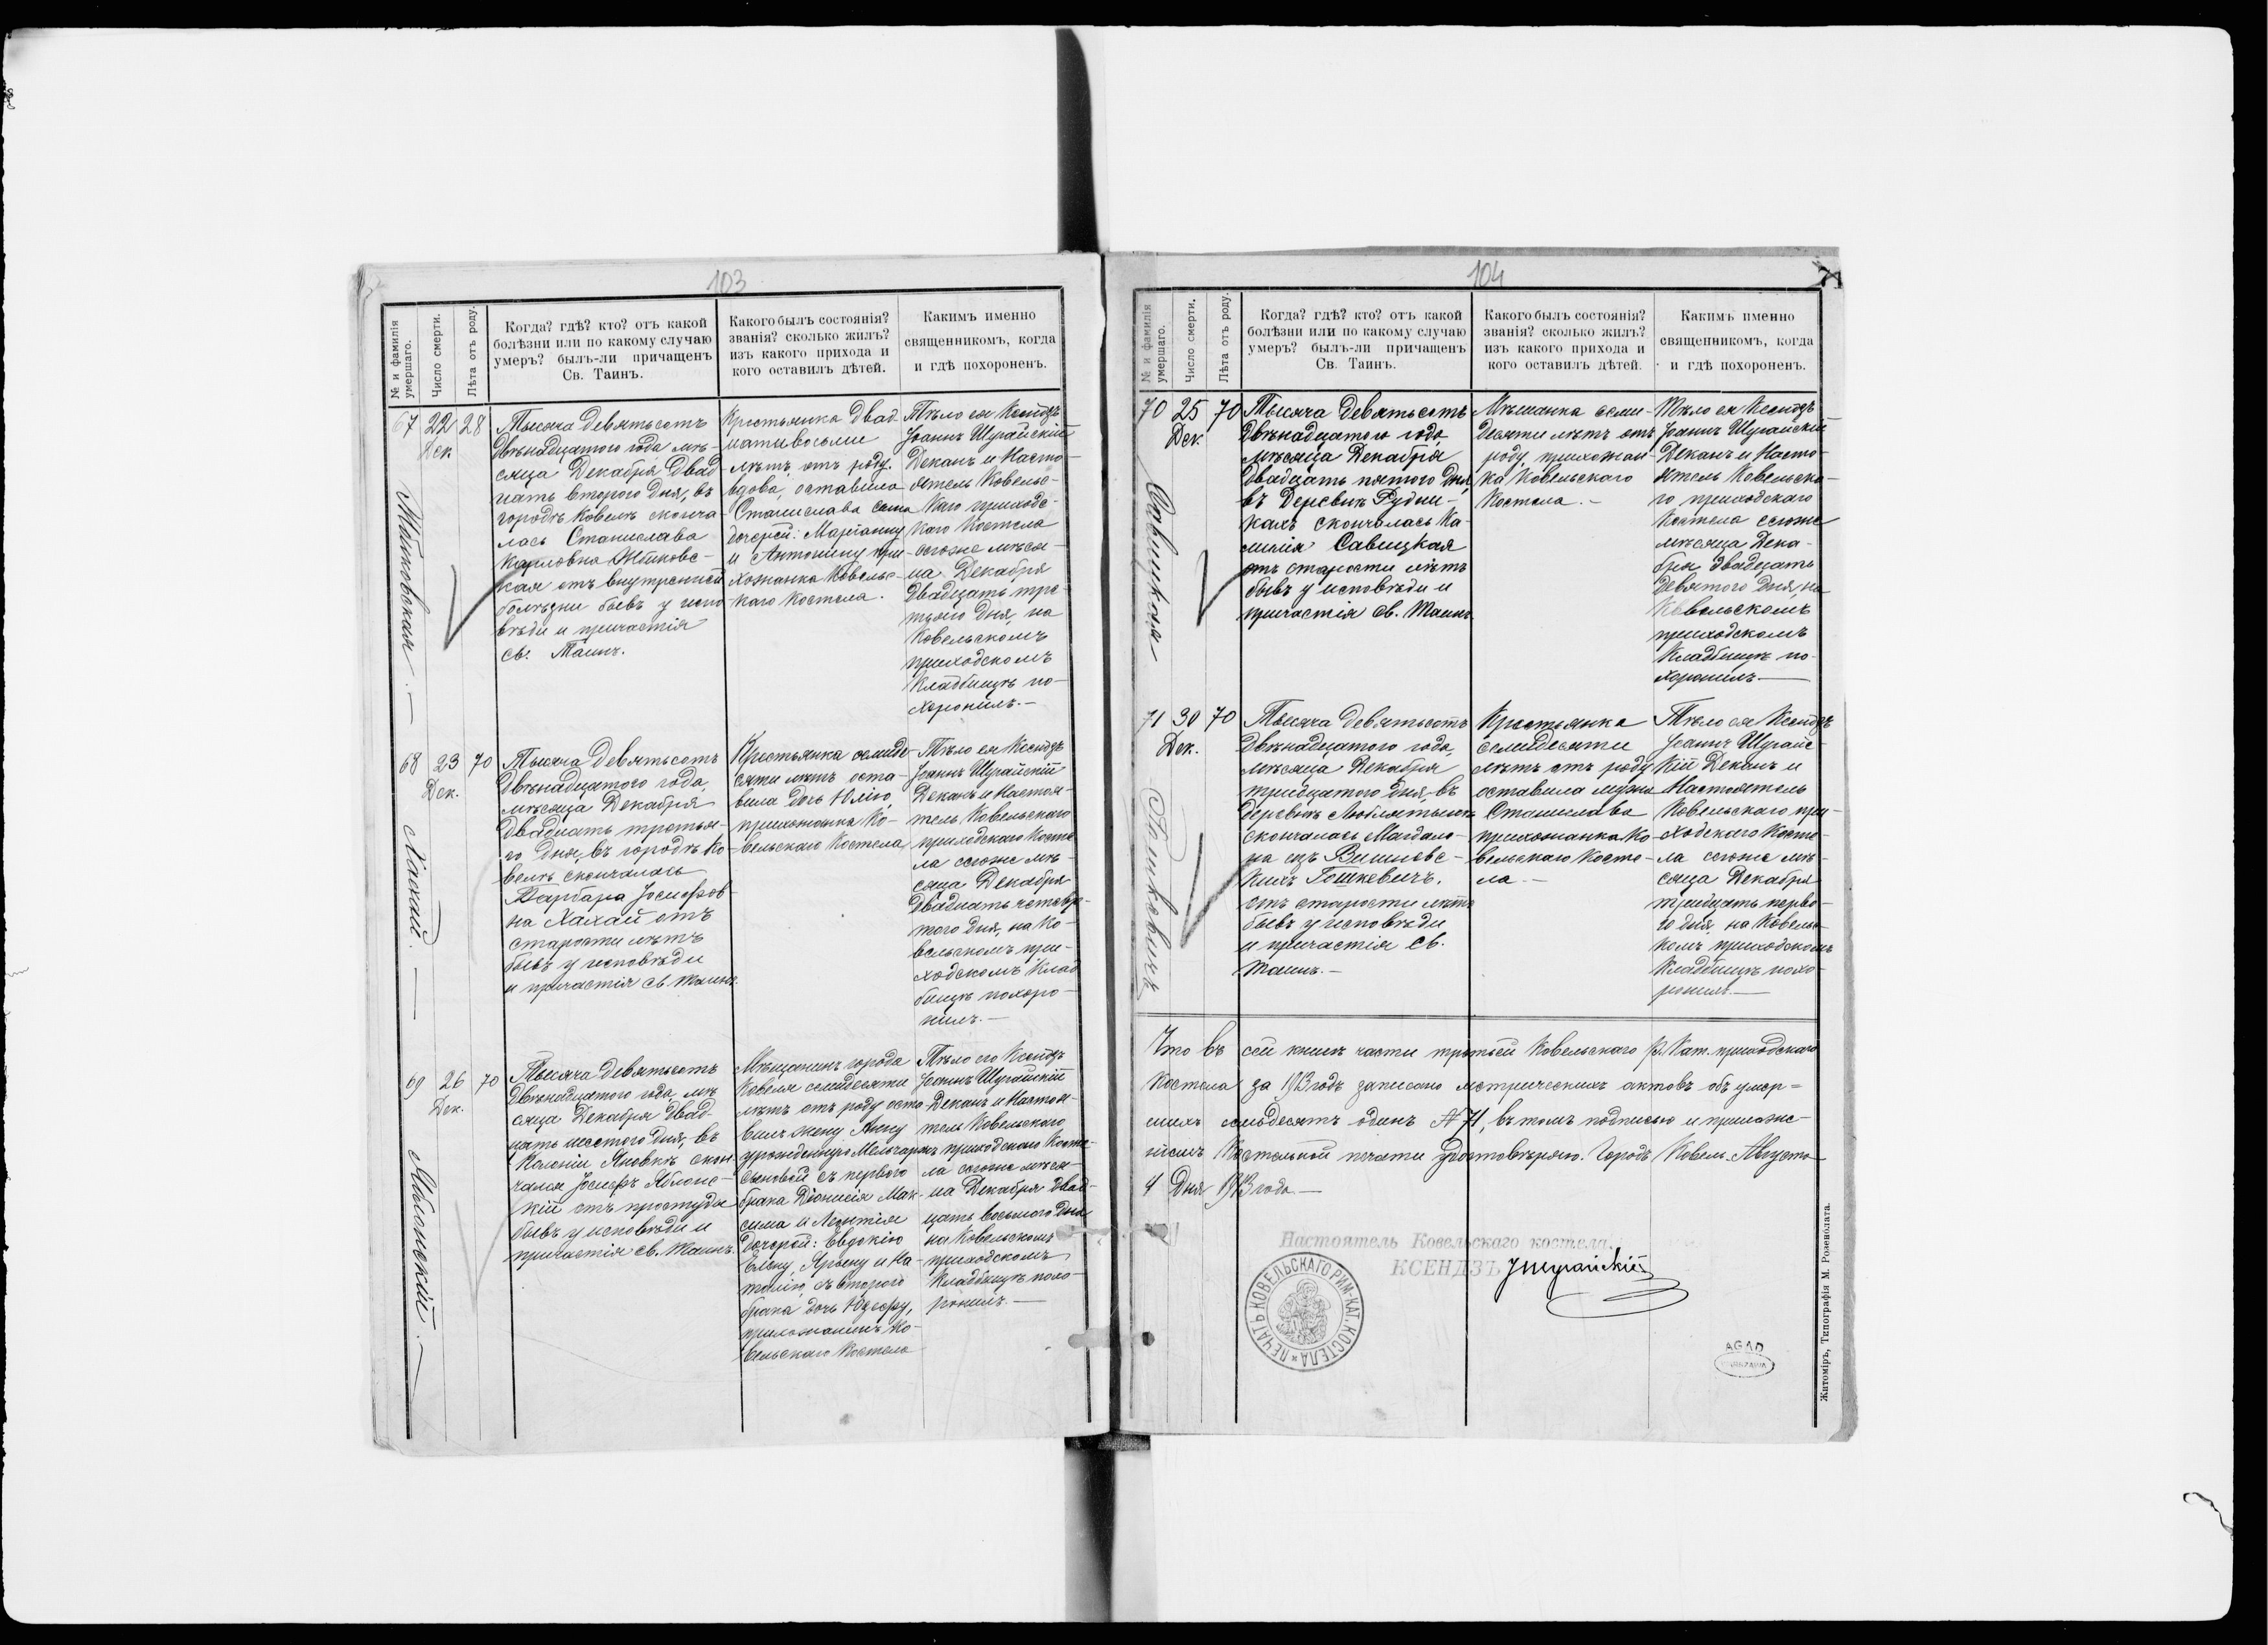 103
№ и фамилія умершаго.
Число смерти.
Лѣта отъ роду.
Когда? гдѣ? кто? отъ какой
болѣзни или по какому случаю
умеръ? былъ-ли причащенъ
Св. Таинъ.
Какого былъ состоянія?
званія? сколько жилъ?
изъ какого прихода и
кого оставилъ дѣтей.
Какимъ именно
священникомъ, когда
и гдѣ похороненъ.
67 22 Дек. 28
Тысяча девятьсотъ
двѣнадцатого года мѣ-
сяца Декабря двад-
цать второго дня, въ
городѣ Ковелѣ сконча-
лась Станислава
Карловна
кая отъ внутренней
болѣзни бывъ у испо-
вѣди и причастія
Св. Таинъ.
Крестьянка двад-
цативосьми
лѣтъ отъ роду.
вдова, оставила
Станислава сына
дочерей: Маріанну
и Антонину при-
хожанка Ковельс-
каго Костела.
Тѣло ея Ксендзъ
Іоаннъ Шурайскій
Деканъ и Насто-
ятель Ковельс-
каго приходс-
каго Костела
сегоже мѣся-
ца Декабря
двадцать тре-
тьяго дня, на
Ковельскомъ
приходскомъ
Кладбищѣ по-
хоронилъ.—
68 23 Дек. 70
Тысяча девятьсотъ
двѣнадцатого года,
мѣсяца Декабря
двадцать третья-
го дня, въ городѣ Ко-
велѣ скончалась
Варбара Іосифов-
на Хахай отъ
старости лѣтъ
бывъ у исповѣди
и причастія Св. Таинъ.
Крестьянка семиде-
сяти лѣтъ оста-
вила дочь Юлію,
прихожанка Ко-
вельскаго Костела
Тѣло ея Ксендзъ
Іоаннъ Шурайскій
Деканъ и Настоя-
тель Ковельскаго
приходскаго Косте-
ла сегоже мѣ-
сяца Декабря
двадцать четвер-
того дня, на Ко-
вельскомъ при-
ходскомъ Клад-
бищѣ похоро-
нилъ.—
69 26 Дек. 70
Яблонскій.—
Тысяча девятьсотъ
двѣнадцатого года, мѣ-
сяца Декабря двад-
цать шестого дня, въ
Колоніи Яновкѣ скон-
чался Іосифъ Яблонс-
кій отъ простуды
бывъ у исповѣди и
причастія Св. Таинъ.
Мѣщанинъ города
Ковеля семидесяти
лѣтъ отъ роду оста-
вилъ жену Анну
урожденную
сыновей съ перваго
брака Діонисія Мак-
сима и Леонтія
дочерей: Евдокію
Елену, и На-
талію, съ второго
брака дочь Юзефу,
прихожанинъ Ко-
вельскаго Костела
Тѣло его Ксендзъ
Іоаннъ Шурайскій
Деканъ и Настоя-
тель Ковельскаго
приходскаго Косте-
ла сегоже мѣся-
ца Декабря двад-
цать восьмого дня
на Ковельскомъ
приходскомъ
Кладбищѣ похо-
ронилъ.—
104
71
№ и фамилія умершаго.
Число смерти.
Лѣта отъ роду.
Когда? гдѣ? кто? отъ какой
болѣзни или по какому случаю
умеръ? былъ-ли причащенъ
Св. Таинъ.
Какого былъ состоянія?
званія? сколько жилъ?
изъ какого прихода и
кого оставилъ дѣтей.
Какимъ именно
священникомъ, когда
и гдѣ похороненъ.
70 25 Дек. 70
Савицкая
Тысяча девятьсотъ
двѣнадцатого года
мѣсяца Декабря
двадцать пятого дня,
въ деревнѣ Рудни-
кахъ скончалась Ка-
милія Савицкая
отъ старости лѣтъ
бывъ у исповѣди и
причастія Св. Таинъ.
Мѣщанка семи-
десяти лѣтъ отъ
роду, прихожан-
ка Ковельскаго
Костела.—
Тѣло ея Ксендзъ
Іоаннъ Шурайскій
Деканъ и Насто-
ятель Ковельска-
го приходскаго
Костела сегоже
мѣсяца Дека-
бря двадцать
девятого дня, на
Ковельскомъ
приходскомъ
Кладбищѣ по-
хоронилъ.—
71 30 Дек. 70
Гошкевичъ
Тысяча девятьсотъ
двѣнадцатого года,
мѣсяца Декабря
тридцатого дня, въ
деревнѣ Люблятынѣ
скончалась Магдале-
на изъ Вишневс-
кихъ Гошкевичъ,
отъ старости лѣтъ
бывъ у исповѣди
и причастія Св.
Таинъ.—
Крестьянка
семидесяти
лѣтъ отъ роду
оставила мужа
Станислава
прихожанка Ко-
вельскаго Косте-
ла.—
Тѣло ея Ксендзъ
Іоаннъ Шурайс-
кій Деканъ и
Настоятель
Ковельскаго при-
ходскаго Косте-
ла сегоже мѣ-
сяца Декабря
тридцать перво-
го дня, на Ковельс-
комъ приходскомъ
Кладбищѣ похо-
ронилъ.—
Что въ сей книгѣ части третьей Ковельскаго Р. Кат. приходскаго
Костела за 1913 годъ записано метрическихъ актовъ объ умер=
шихъ семьдесятъ одинъ № 71, въ томъ подписью и приложе-
ніемъ Костельной печати удостовѣряю. Городъ Ковель. Августа
4 дня 1913 года.—
Настоятель Ковельскаго костела,
КСЕНДЗЪ
ПЕЧАТЬ КОВЕЛЬСКАГО РИМ-КАТ. КОСТЕЛА
AGAD
WARSZAWA
Житоміръ, Типографія М. Розенблата.